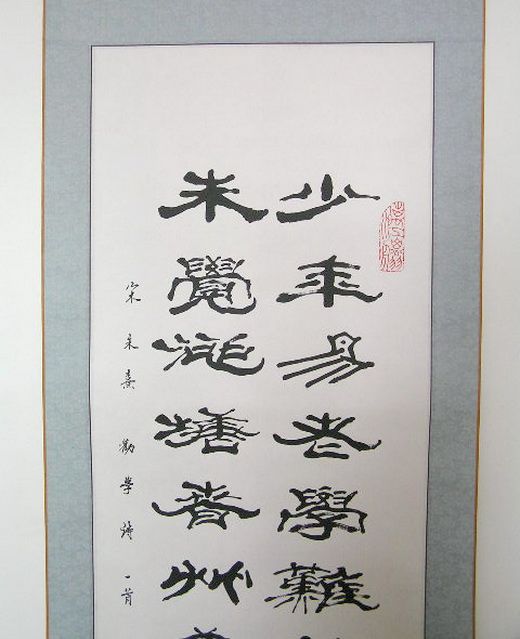 少年易老學難
未覺池塘春艸
宋朱熹 勸學詩一首